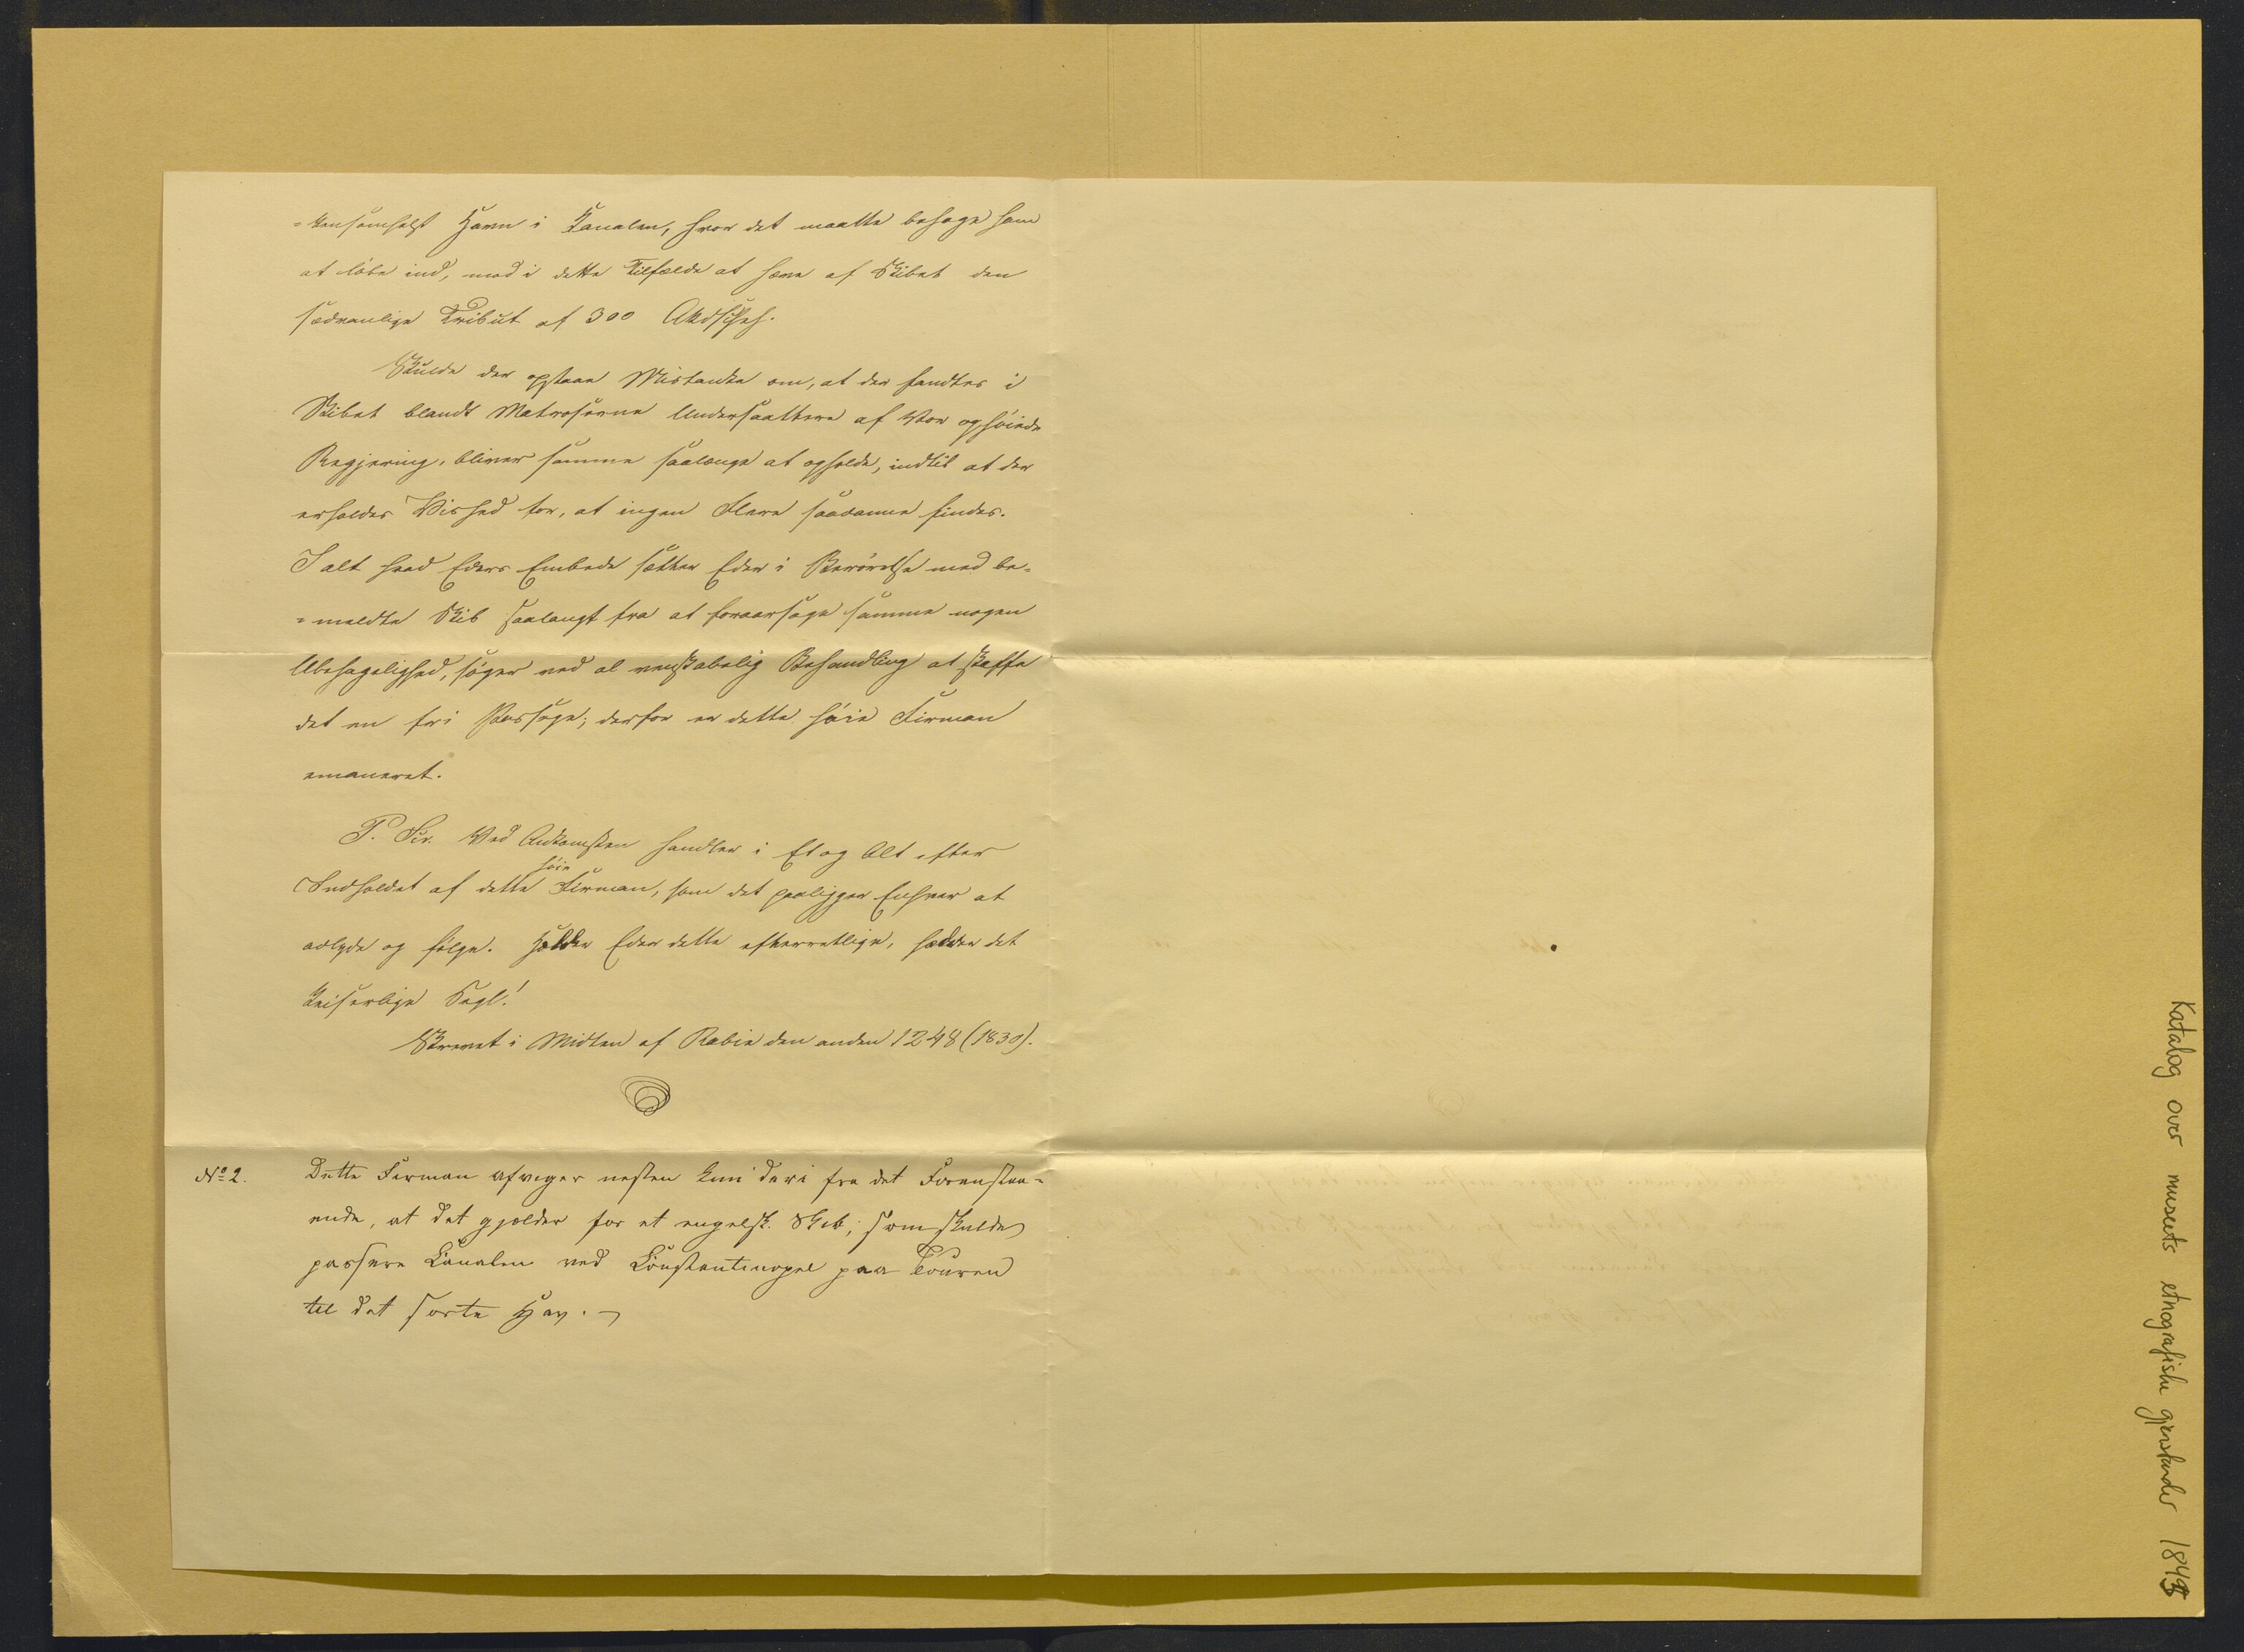 =kensomhelst Havn i Kanalen, hvor det maatte behage ham
at löbe ind, med i dette Tilfælde at hæve af Skibet den
sædvanlige Tribut af 300 Akdschhes.
Skulde der opstaae Mistanke om, at der fandtes i
Skibet blandt Matroserne Undersaattere af Vor ophöiede
Regjering, bliver samme saalænge at opholde, indtil at der
erholdes Vished for, at ingen Flere saadanne findes.
I alt hvad Eders Embede sætter Eder i Berörelse med be=
=meldte Skib saalangt fra at foraarsage samme nogen
Ubehagelighed, söger ved al venskabelig Behandling at skaffe
det en fri Passage; derfor er dette höie Firman
emaneret.
P. Scr. Ved Ankomsten handler i Et og Alt efter
Indholdet af dette höie Firman, som det paaligger Enhver at
adlyde og fölge. Holder Eder dette efterretlige, hædrer det
Keiserlige Segl!
Skrevet i Midten af Rabia den anden 1248 (1830).
No 2. Dette Firman afviger næsten kun deri fra det Forenstaa=
ende, at det gjælder for et engelsk Skib, som skulde
passere Canalen ved Constantinopel paa Touren
til det sorte Hav.
Katalog over museets etnografiske gjenstander 1843